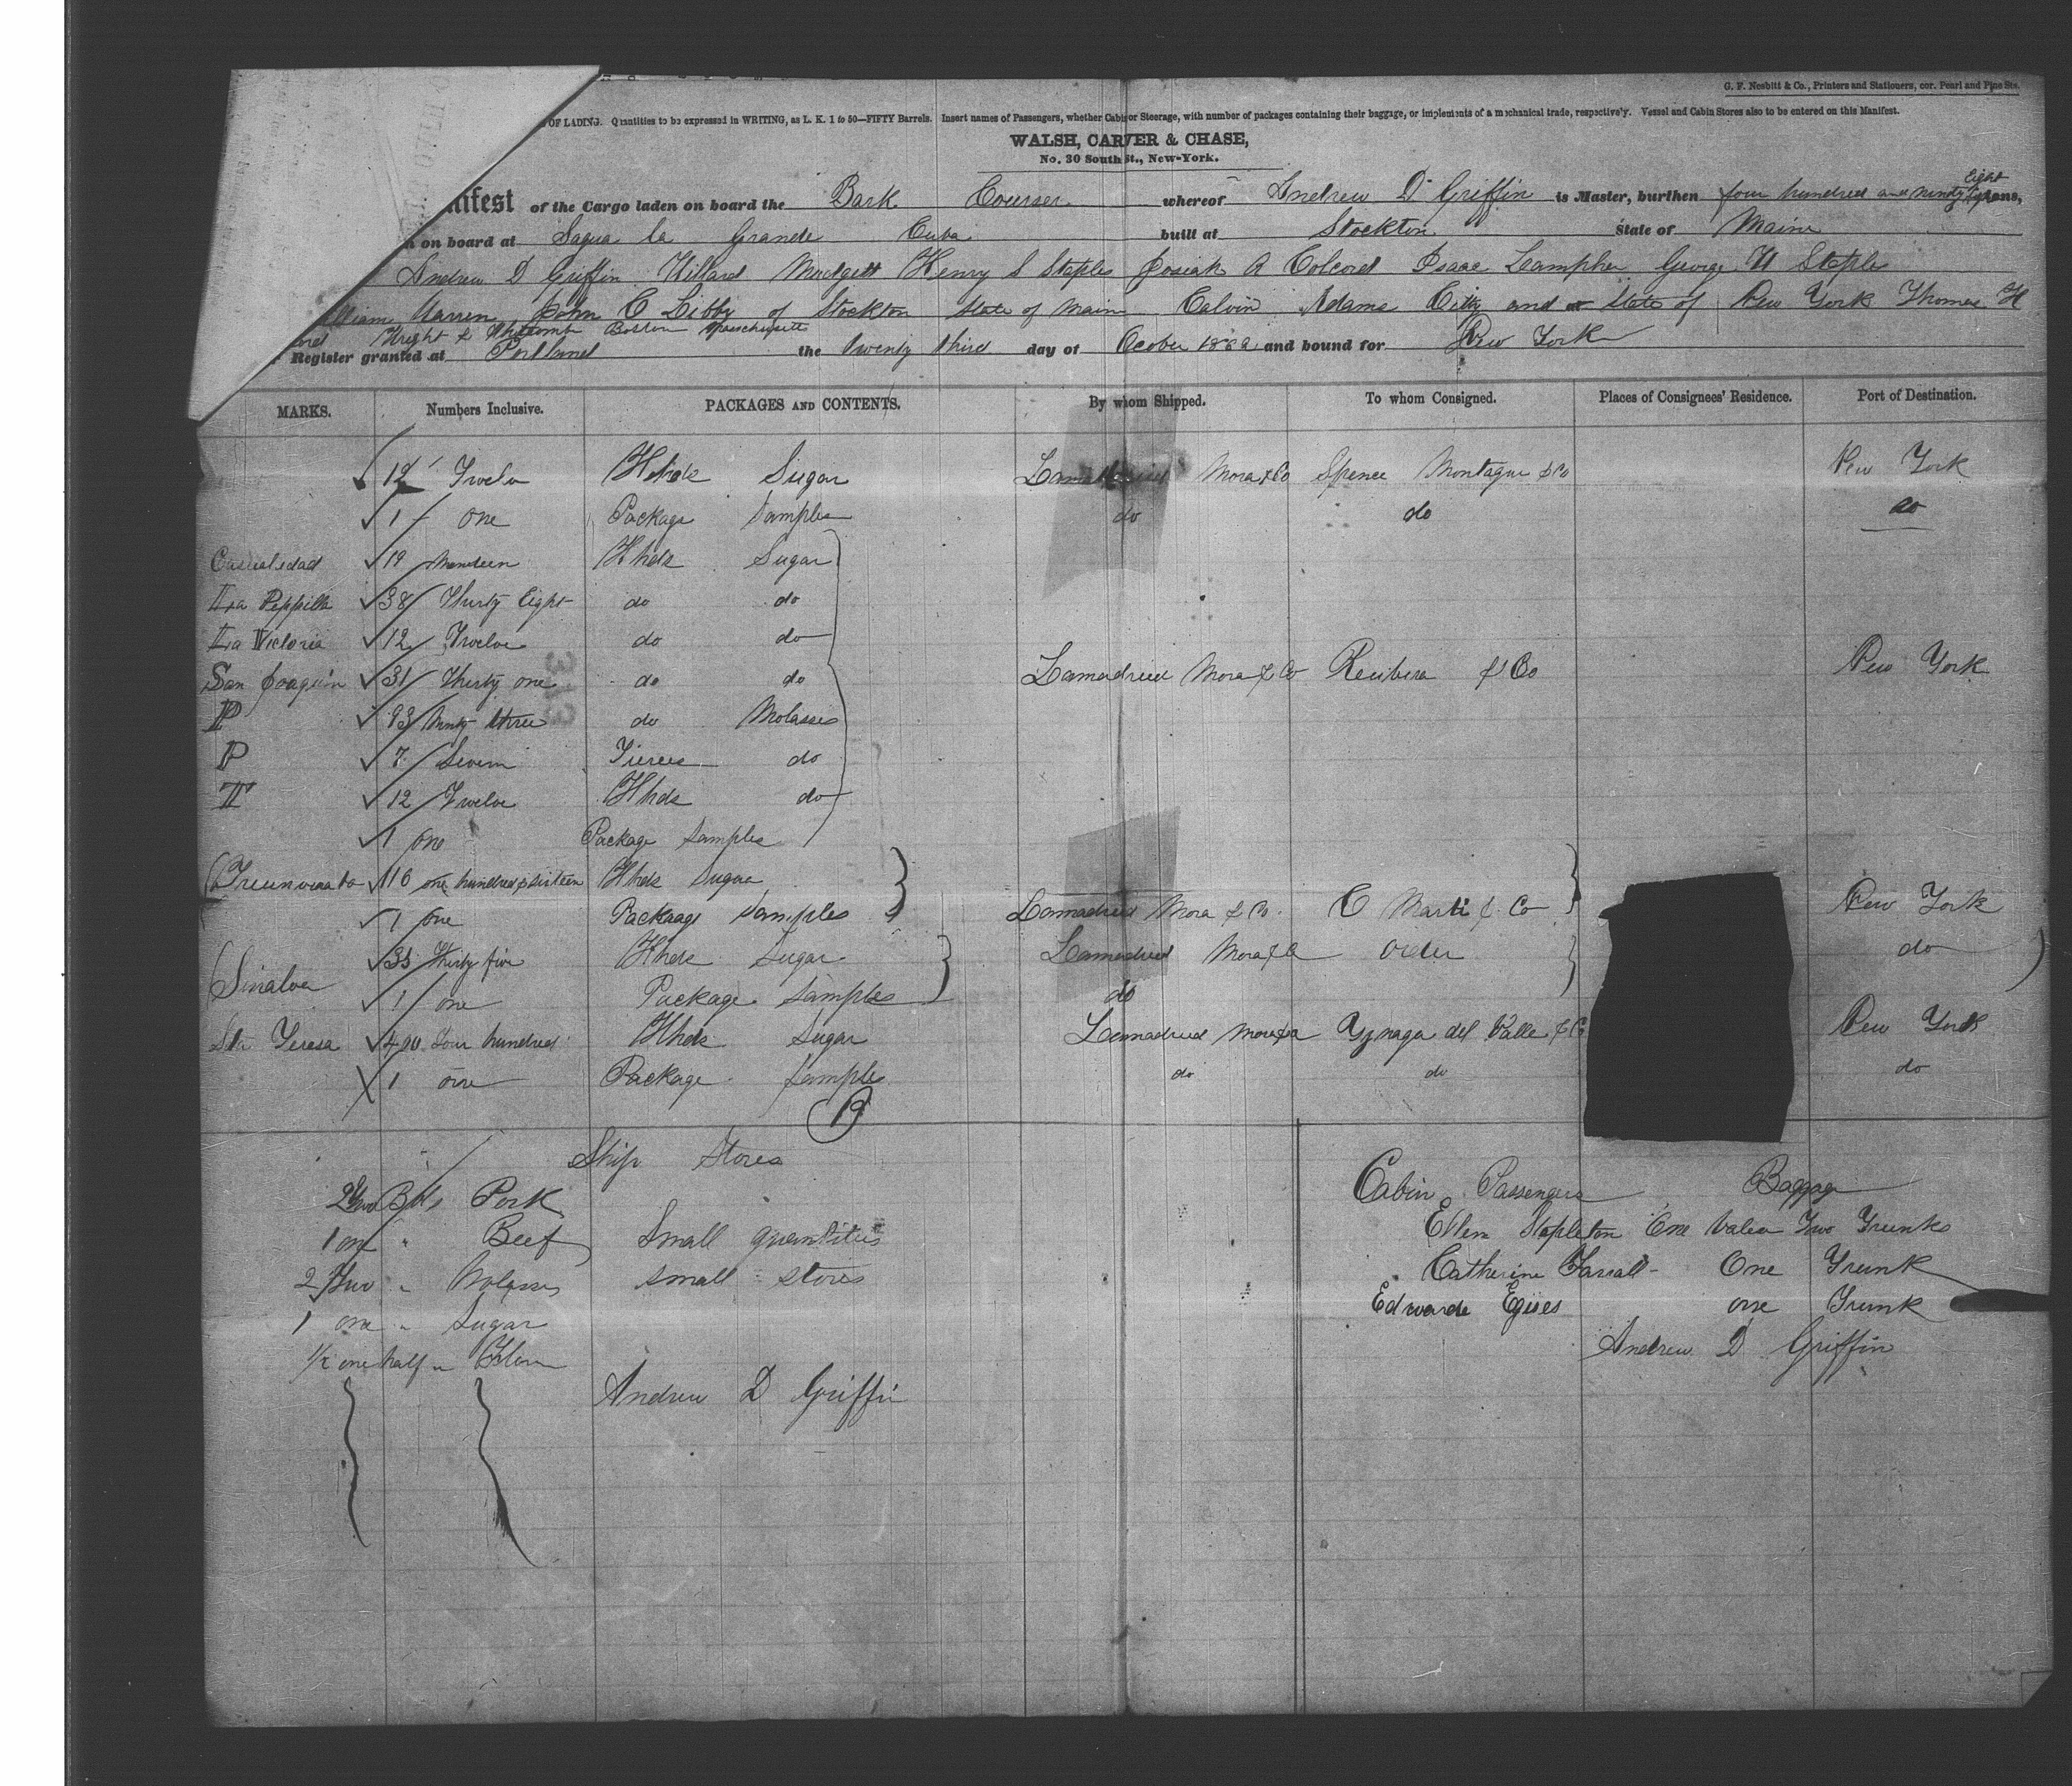 G. F. Nesbitt & Co., Printers and Stationers, cor. Pearl and Pine Sts.
OF LADING. Quantities to be expressed in WRITING, as L. K. 1 to 50—FIFTY Barrels. Insert names of Passengers, whether Cabin or Steerage, with number of packages containing their baggage, or implements of a mechanical trade, respectively. Vessel and Cabin Stores also to be entered on this Manifest.
WALSH, CARVER & CHASE,
No. 30 South St., New-York.
nifest of the Cargo laden on board the Bark Courser whereof Andrew D Griffin is Master, burthen four hundred and ninety Eight tons,
on board at Sagua la Grande Cuba built at Stockton State of Maine
Andrew D Griffin Willard Mudgett Henry S Staples Josiah A Colcord Isaac Lampher George W Staples
lliam Warren John C Libby of Stockton State of Maine Calvin Adams City and State of New York Thomas H
ord Wright & Whitcomb Boston Massachusetts
Register granted at Portland the twenty third day of Ocober and bound for New York
MARKS. Numbers Inclusive. PACKAGES AND CONTENTS. By whom Shipped. To whom Consigned. Places of Consignees' Residence. Port of Destination.
12 Twelve Hhds Sugar Lamadrid Mora & Co Spence Montague & Co New York
1 one Package Samples do do do
19 Nineteen Hhds Sugar
La Peppilla 38 Thirty Eight do do
La Victoria 12 Twelve do do
San Joaquin 31 Thirty one do do Lamadrid Mora & Co & Co New York
P 93 Ninety three do Molasses
P 7 Seven Tierces do
T 12 Twelve Hhds do
1 one Package Samples
116 one hundred & sixteen Hhds Sugar
1 one Package Samples Lamadrid Mora & Co. C Marti & Co New York
Sinaloa 35 Thirty five Hhds Sugar Lamadrid Mora & Co order do
1 one Package Samples do
Sta Teresa 400 Four hundred Hhds Sugar Lamadrid Mora & Co Yznaga del Valle & Co New York
1 one Package Samples do do do
Ship Stores
2 two Bbls Pork
1 one " Beef Small quantities
2 Two " Molasses small stores
1 one " Sugar
1/2 one half " Flour
Andrew D Griffin
Cabin Passengers Baggage
Ellen Stapleton One Valise Two Trunks
Catherine Farrall - One Trunk
Edwarde Egües one Trunk
Andrew D Griffin